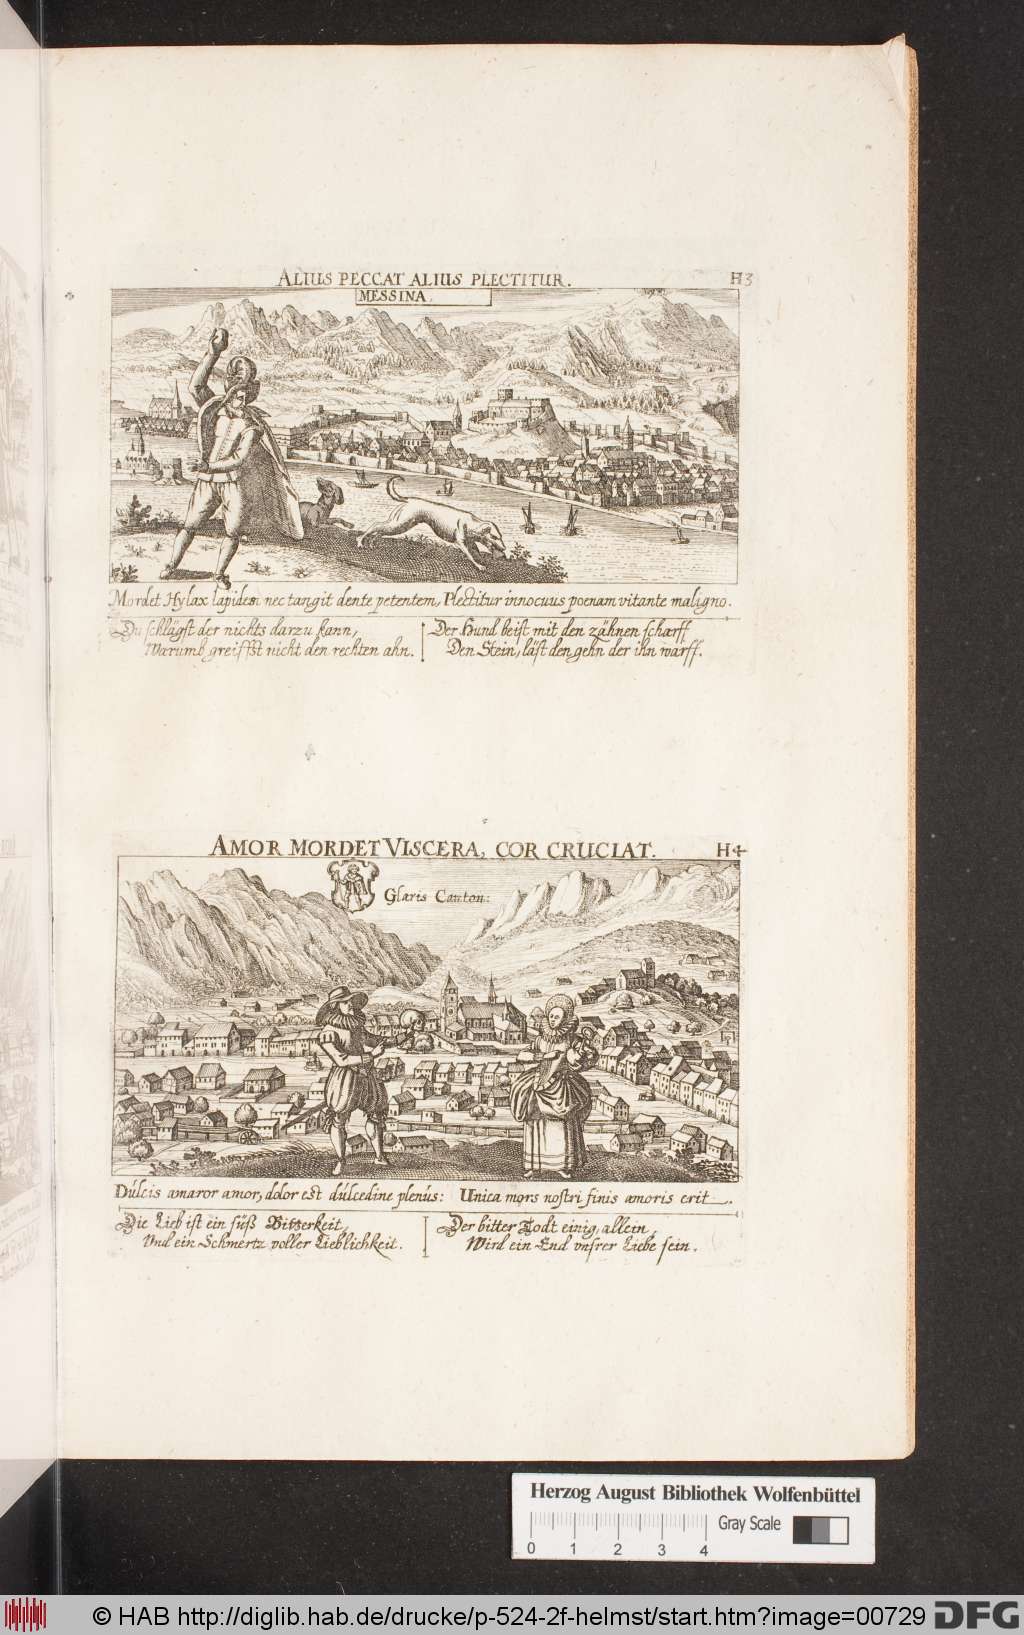 ALIUS PECCAT ALIUS PLECTITUR.
H3
MESSINA
Mordet Hylax lapidem nec tangit dente petentem, Plectitur innocuus poenam vitante maligno.
Du schlägst der nichts darzu kann,
Warumb greiffst nicht den rechten ahn.
Der Hund beist mit den zähnen scharff
Den Stein, läst den gehn der ihn warff.
AMOR MORDET VISCERA, COR CRUCIAT.
H4
Glaris Canton:
Dulcis amaror amor, dolor est dulcedine plenus: Unica mors nostri finis amoris erit.
Die Lieb ist ein süß Bitterkeit,
Und ein Schmertz voller Lieblichkeit.
Der bitter Todt einig allein,
Wird ein End vnsrer Liebe sein.
Herzog August Bibliothek Wolfenbüttel
Gray Scale
0 1 2 3 4
© HAB http://diglib.hab.de/drucke/p-524-2f-helmst/start.htm?image=00729 DFG